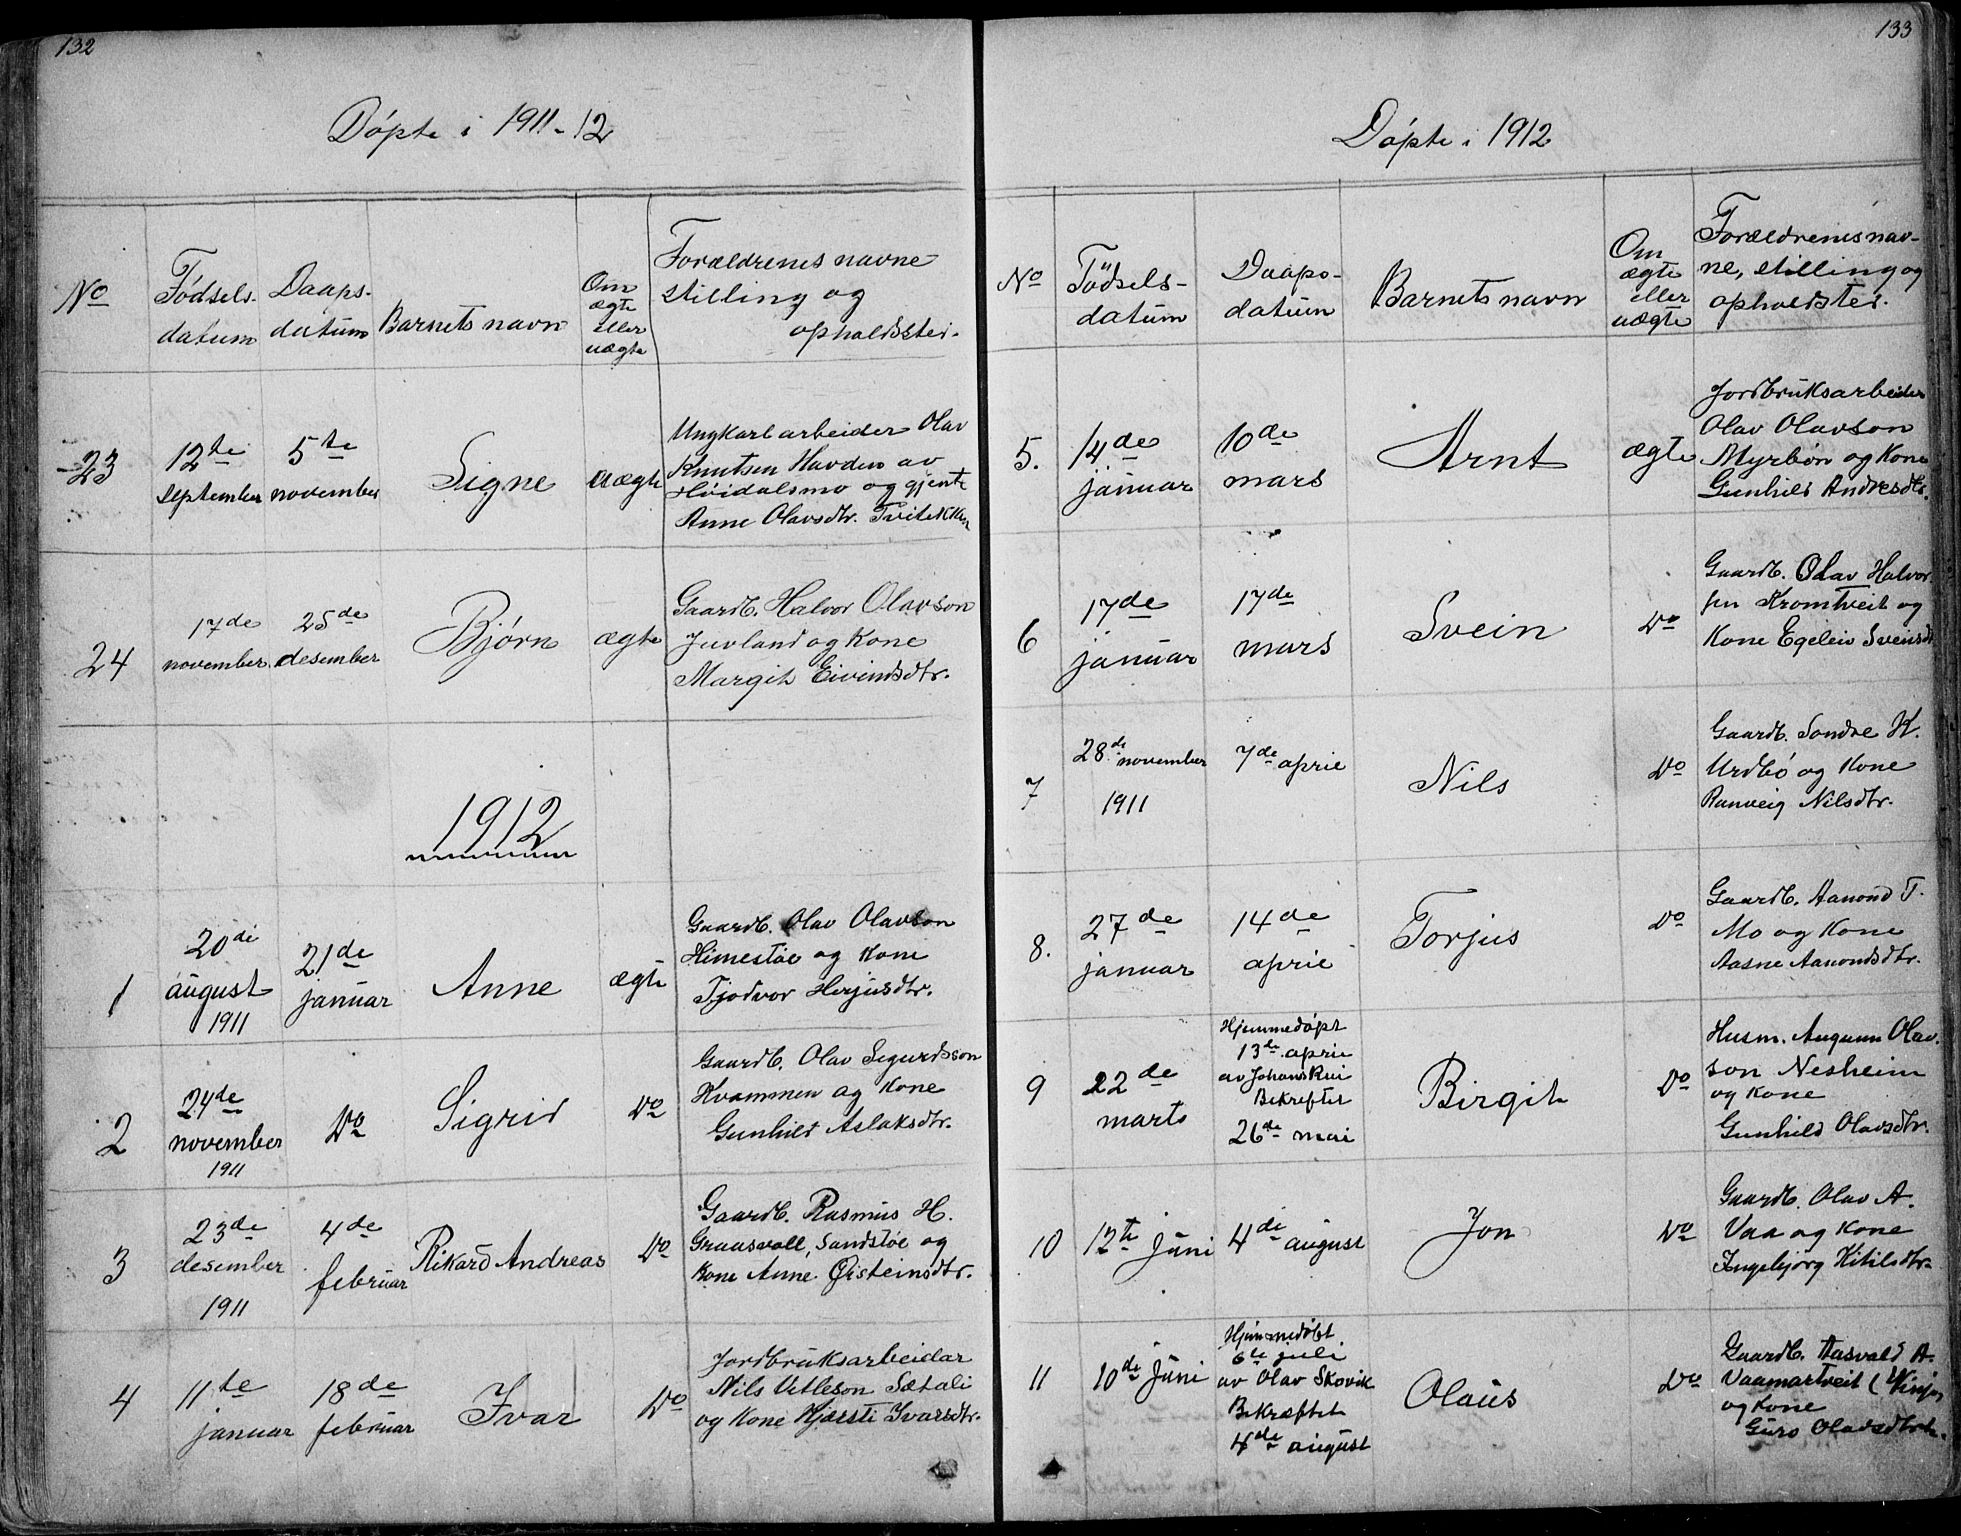 132
Døpte i 1911-12
No
Fødsels-
datum
Daaps-
datum
Barnets navn
Om
ægte
eller
uægte
Forældrenes navne
stilling og
opholdsted.
23
12te
september
5te
november
Signe
uægte
Ungkarl arbeider Olav
Knutsen Havden av
Høidalsmo og gjente
Anne Olavsdtr.
24
17de
november
25de
desember
Bjørn
ægte
Gaardb. Halvor Olavson
Juvland og Kone
Margit Eivindsdtr.
1912
1
20de
august
1911
21de
januar
Anne
ægte
Gaardb. Olav Olavson
Himestøe og Kone
Tjodvor Herjusdtr.
2
24de
november
1911
Do
Sigrid
Do
Gaardb. Olav Sigurdsson
Kvammen og Kone
Gunhild Aslaksdtr.
3
23de
desember
1911
4de
februar
Rikard Andreas
Do
Gaardb. Rasmus H.
Graasvoll, Sandstøe og
Kone Anne Øisteinsdtr.
4
11te
januar
18de
februar
Ivar
Do
Jordbruksarbeidar
Nils Vetleson Sætali
og Kone Kjærsti Ivarsdtr.
133
Døpte i 1912
No
Fødsels-
datum
Daaps-
datum
Barnets navn
Om
ægte
eller
uægte
Forældrenes nav-
ne, stilling og
opholdsted.
5.
14de
januar
10de
mars
Arnt
ægte
Jordbruksarbeider
Olav Olavson
Myrbøn og Kone
Gunhild Andresdtr.
6
17de
januar
17de
mars
Svein
Do
Gaardb. Olav Halvor-
sen Kromtveit og
Kone Egeleiv Sveinsdtr
7
28de november
1911
7de april
Nils
Do
Gaardb. Sondre K.
Urdbø og Kone
Ranveig Nilsdtr.
8.
27de
januar
14de
april
Torjus
Do
Gaardb. Aanond T.
Mo og Kone
Aasne Aanondsdtr.
9
22de
marts
Hjemmedøpt
13de april
av Johans Rui
Bekreftet
26de mai
Birgit
Do
Husm. Augunn Olav-
son Nesheim
og Kone
Gunhild Olavsdtr.
10
12te juni
4de august
Jon
Do
Gaardb. Olav A.
Vaa og Kone
Ingebjørg Kitilsdtr.
11
10de juni
Hjemmedøbt
6te juli
av Olav Skovik
Bekræftet
4de august
Olaus
Do
Gaardb. Aasvald A.
Vaamartveit (Vinje)
og Kone
Guro Olavsdtr.